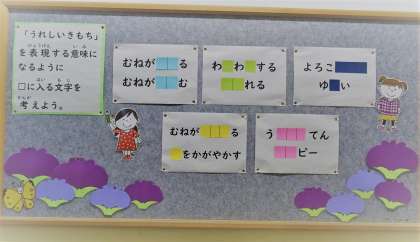 「うれしいきもち」
を表現する意味に
なるように
□に入る文字を
考えよう。
むねが□□る
むねが□□む
わ□わ□する
□□れる
よろこ□□□
ゆ□い
むねが□□□る
□をかがやかす
う□□□てん
□□ピー